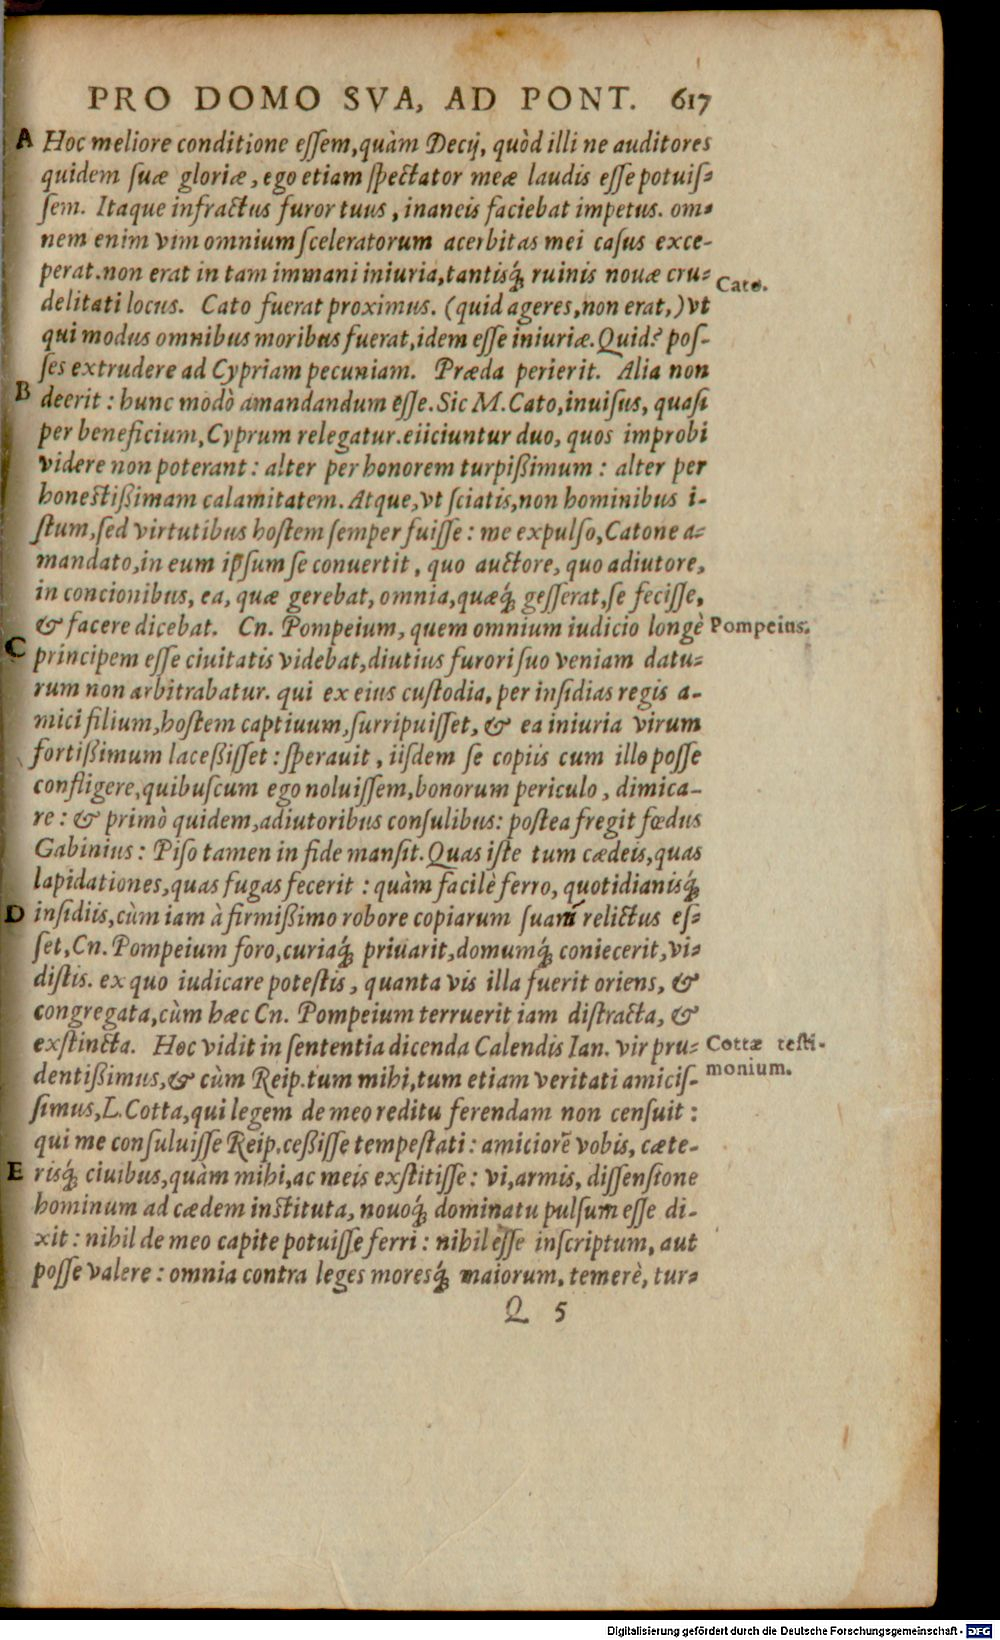 PRO DOMO SVA, AD PONT. 617
A Hoc meliore conditione eſſem, quàm Decij, quòd illi ne auditores
quidem ſuæ gloriæ, ego etiam ſpectator meæ laudis eſſe potuiſ-
ſem. Itaque infractus furor tuus, inaneis faciebat impetus. om-
nem enim vim omnium ſceleratorum acerbitas mei caſus exce-
perat. non erat in tam immani iniuria, tantisq́; ruinis nouæ cru-
Cato.
delitati locus. Cato fuerat proximus. (quid ageres, non erat,) vt
qui modus omnibus moribus fuerat, idem eſſe iniuriæ. Quid? poſ-
ſes extrudere ad Cypriam pecuniam. Præda perierit. Alia non
B deerit: hunc modò amandandum eſſe. Sic M. Cato, inuiſus, quaſi
per beneficium, Cyprum relegatur. eiiciuntur duo, quos improbi
videre non poterant: alter per honorem turpißimum: alter per
honeſtißimam calamitatem. Atque, vt ſciatis, non hominibus i-
ſtum, ſed virtutibus hoſtem ſemper fuiſſe: me expulſo, Catone a-
mandato, in eum ipſum ſe conuertit, quo auctore, quo adiutore,
in concionibus, ea, quæ gerebat, omnia, quæq́; geſſerat, ſe feciſſe,
& facere dicebat. Cn. Pompeium, quem omnium iudicio longè
Pompeius.
C principem eſſe ciuitatis videbat, diutius furori ſuo veniam datu-
rum non arbitrabatur. qui ex eius cuſtodia, per inſidias regis a-
mici filium, hoſtem captiuum, ſurripuiſſet, & ea iniuria virum
fortißimum laceßiſſet: ſperauit, iiſdem ſe copiis cum illo poſſe
confligere, quibuſcum ego noluiſſem, bonorum periculo, dimica-
re: & primò quidem, adiutoribus conſulibus: poſtea fregit fœdus
Gabinius: Piſo tamen in fide manſit. Quas iſte tum cædeis, quas
lapidationes, quas fugas fecerit: quàm facilè ferro, quotidianisq́;
D inſidiis, cùm iam à firmißimo robore copiarum ſuarū relictus eſ-
ſet, Cn. Pompeium foro, curiaq́; priuarit, domumq́; coniecerit, vi-
diſtis. ex quo iudicare poteſtis, quanta vis illa fuerit oriens, &
congregata, cùm hæc Cn. Pompeium terruerit iam diſtracta, &
exſtincta. Hoc vidit in ſententia dicenda Calendis Ian. vir pru-
Cottæ teſti-
monium.
dentißimus, & cùm Reip. tum mihi, tum etiam veritati amiciſ-
ſimus, L. Cotta, qui legem de meo reditu ferendam non cenſuit:
qui me conſuluiſſe Reip. ceßiſſe tempeſtati: amiciorē vobis, cæte-
E risq́; ciuibus, quàm mihi, ac meis exſtitiſſe: vi, armis, diſſenſione
hominum ad cædem inſtituta, nouoq́; dominatu pulſum eſſe di-
xit: nihil de meo capite potuiſſe ferri: nihil eſſe inſcriptum, aut
poſſe valere: omnia contra leges moresq́; maiorum, temerè, tur-
Q 5
Digitalisierung gefördert durch die Deutsche Forschungsgemeinschaft - DFG